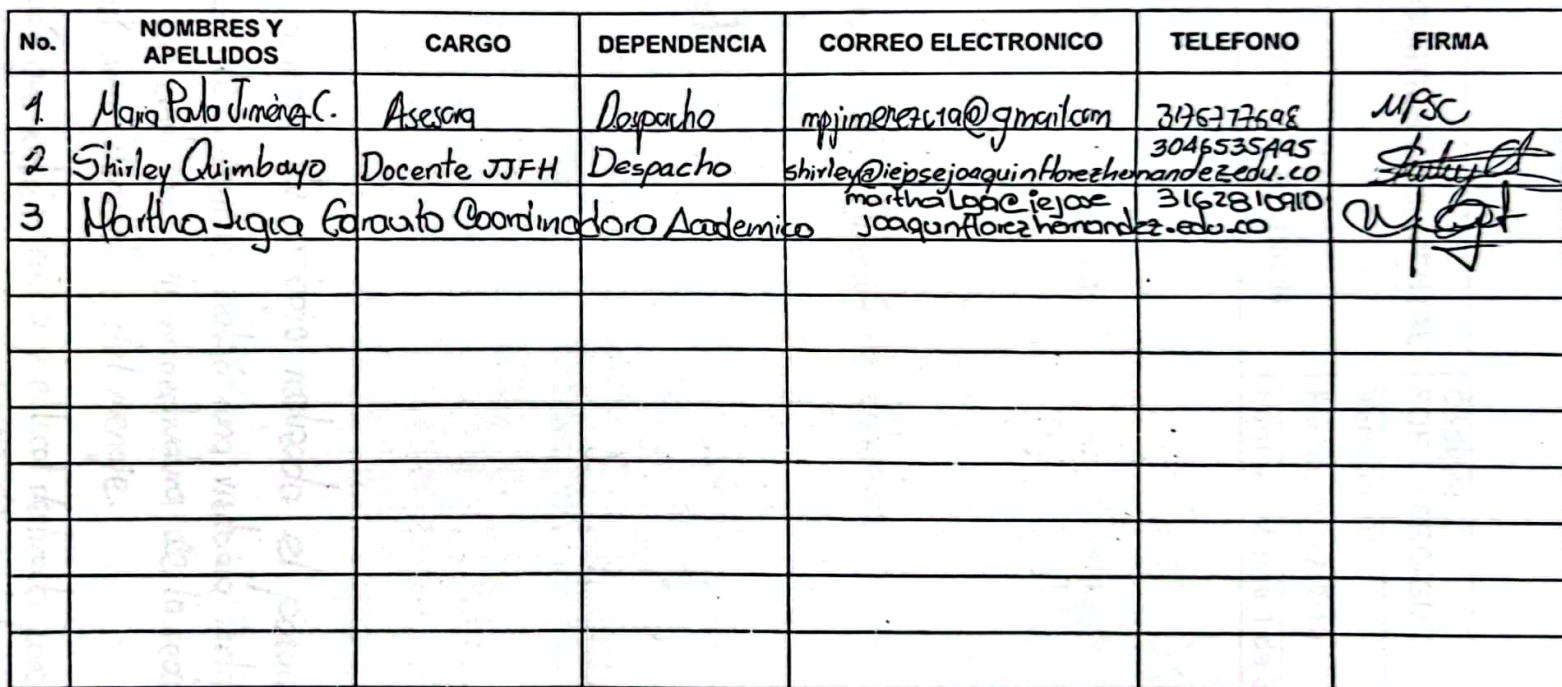 No. NOMBRES Y APELLIDOS CARGO DEPENDENCIA CORREO ELECTRONICO TELEFONO FIRMA
1. Maria Paula Jiménez C. Asesora Despacho mpjimenezc19@gmail.com 3176777698 MPJC
2 Shirley Quimbayo Docente JJFH Despacho shirley@iepsejoaquinflorezhernandez.edu.co 3046535495
3 Martha Ligia Coordinadora Academico 3162810910
joaquinflorezhernandez.edu.co